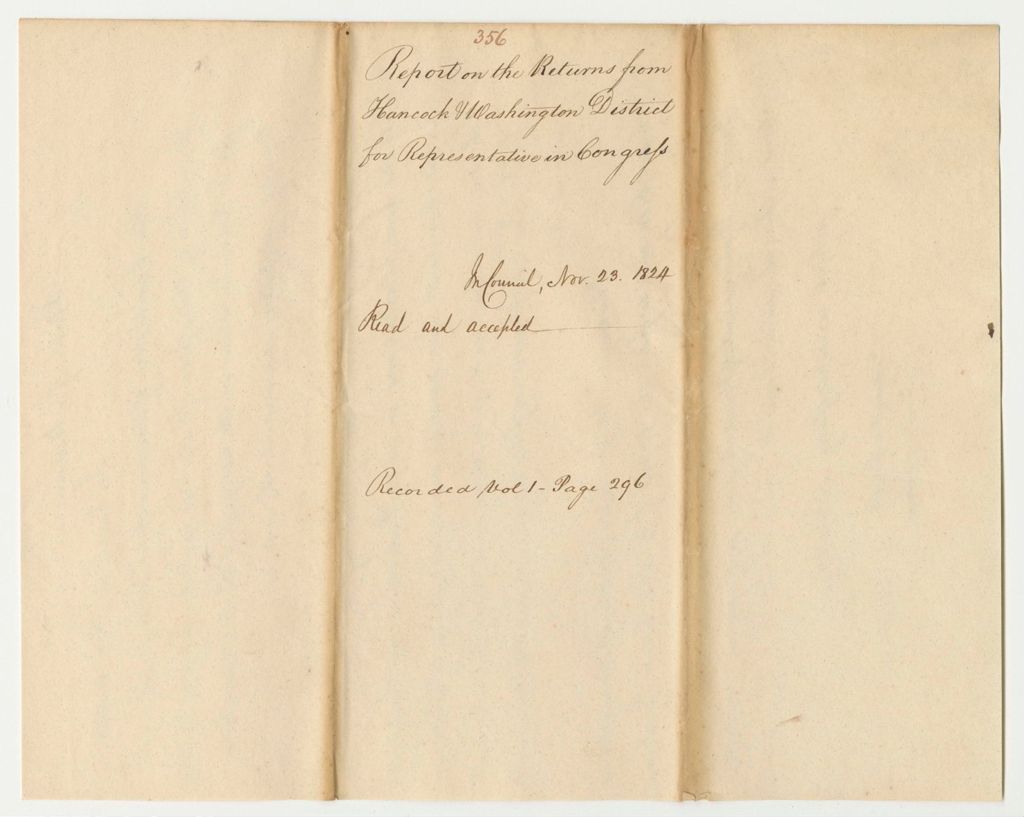 356
Report on the Returns from
Hancock & Washington District
for Representative in Congress
In Council, Nov. 23. 1824
Read and accepted
Recorded Vol 1 - Page 296